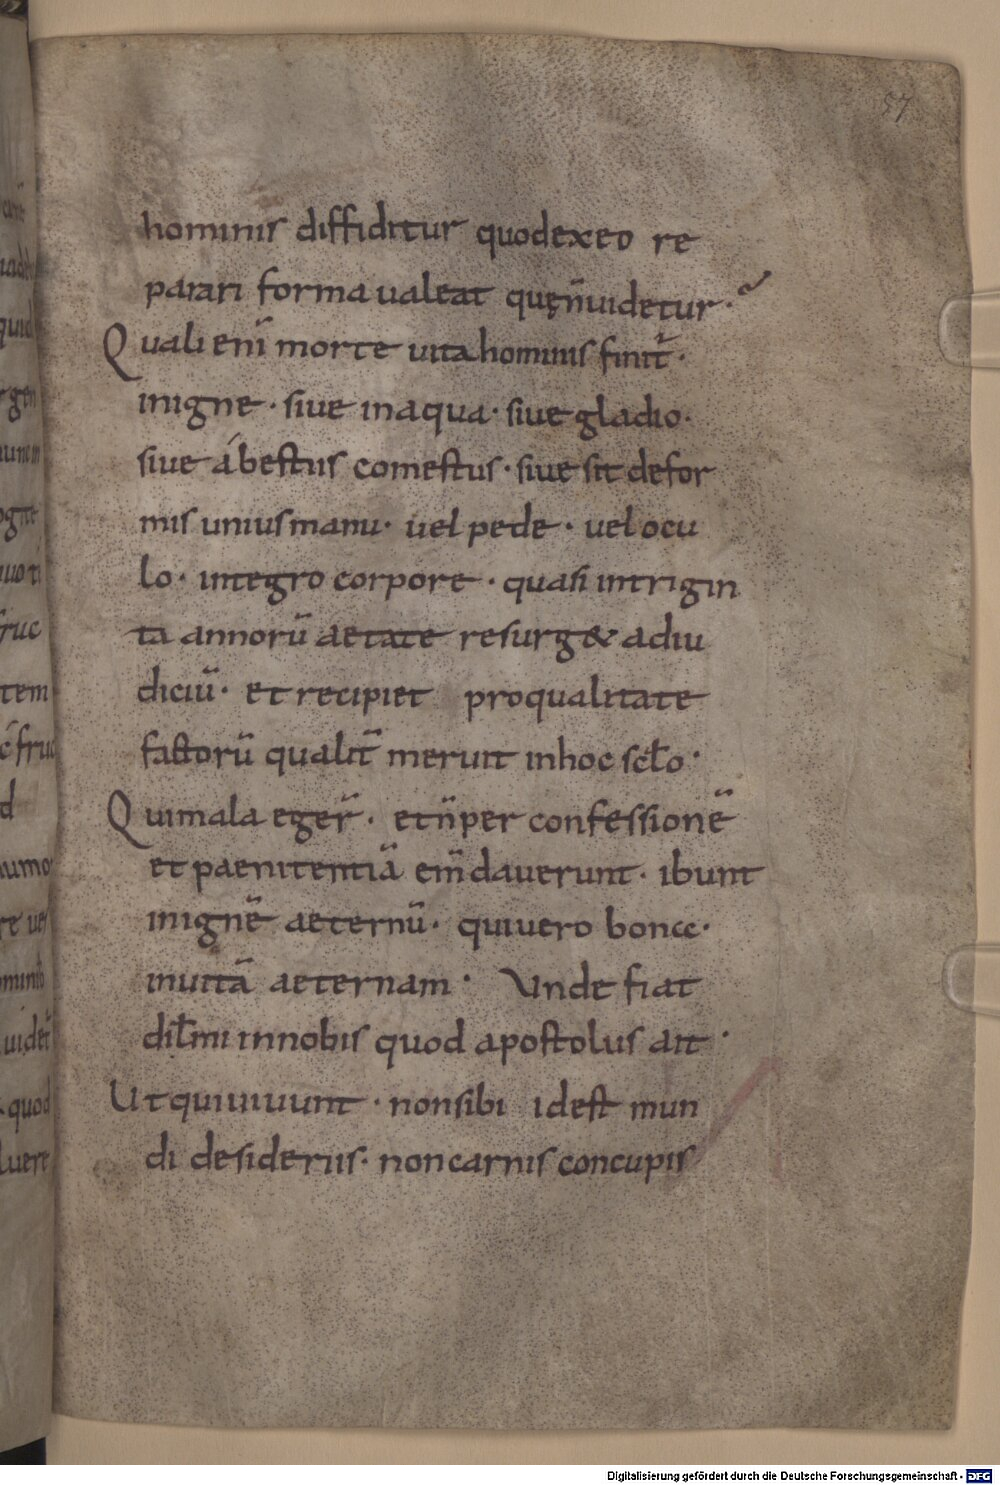 57
hominis diffiditur quodexeo re
parari forma ualeat quęn̄uidetur·
Quali enī morte uita hominis finit̄·
inigne· siue inaqua· siue gladio·
siue ábestiis comestus· siue sit defor
mis unius manu· uel pede· uel ocu
lo· integro corpore· quasi intrigin
ta annorū aetate resurg& adiu
diciū· et recipiet proqualitate
factorū qualit̄ meruit inhoc sc̄lo·
Qui mala eger̄· etn̄per confessionē
et paenitentiā em̄dauerunt· ibunt
inignē aeternū· quiuero bonc·
inuitā aeternam· Unde fiat
dil̄mi innobis quod apostolus ait·
Ut quiuiuunt· nonsibi idest mun
di desideriis· noncarnis concupis
Digitalisierung gefördert durch die Deutsche Forschungsgemeinschaft - DFG